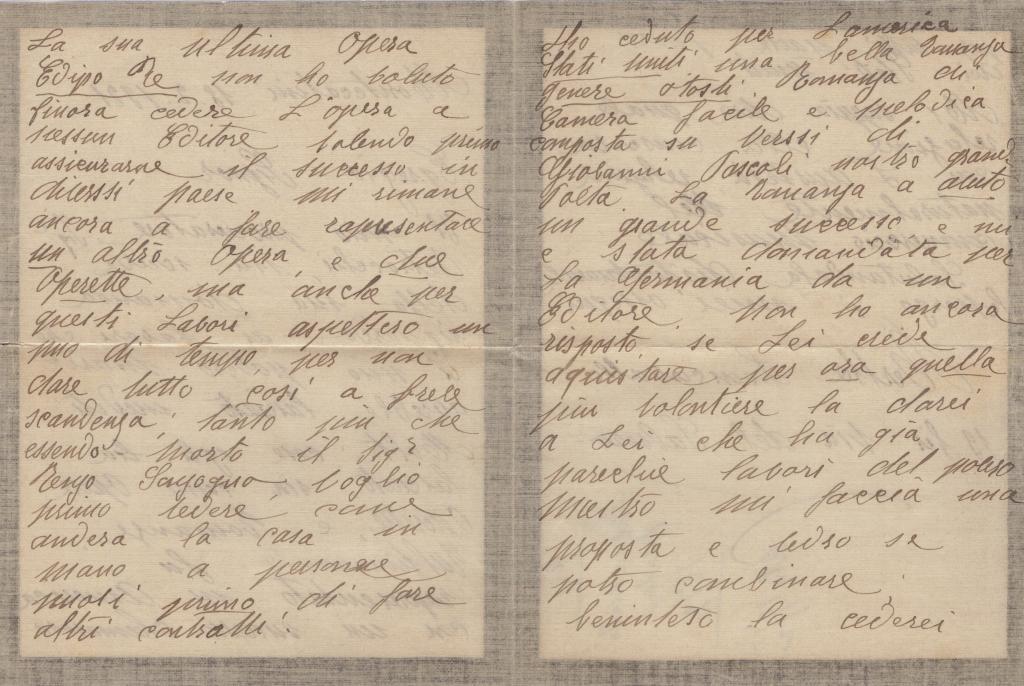 La sua ultima Opera
Edipo Re non ho voluto
finora cedere L'opera a
nessun Editore volendo primo
assicurarne il successo in
diverssi paese mi rimane
ancora a fare rapresentare
un altro Opera, e due
Operette, ma anche per
questi Lavori aspettero un
puo di tempo, per non
dare tutto cosi a breve
scandenza, tanto piu che
essendo morto il Sigr
Renzo Sonzogno voglio
primo vedere come
andera la casa in
mano a persone
nuovi primo di fare
altri contratti.
Ho ceduto per Lamerica
Stati Uniti una bella Romanza
genere Otosti Romanza di
Camera facile e melodica
composta su verssi di
Giovanni Pascoli nostro grand
Poeta La Romanza a avuto
un grande successo e mi
e stata domandata per
La Germania da un
Editore. Non ho ancora
risposto, se Lei crede
aquistare per ora quella
piu volontiere la darei
a Lei che ha già
parechie lavori del povero
Maestro mi faccia una
proposta e vedro se
potro combinare,
beninteso la cederei